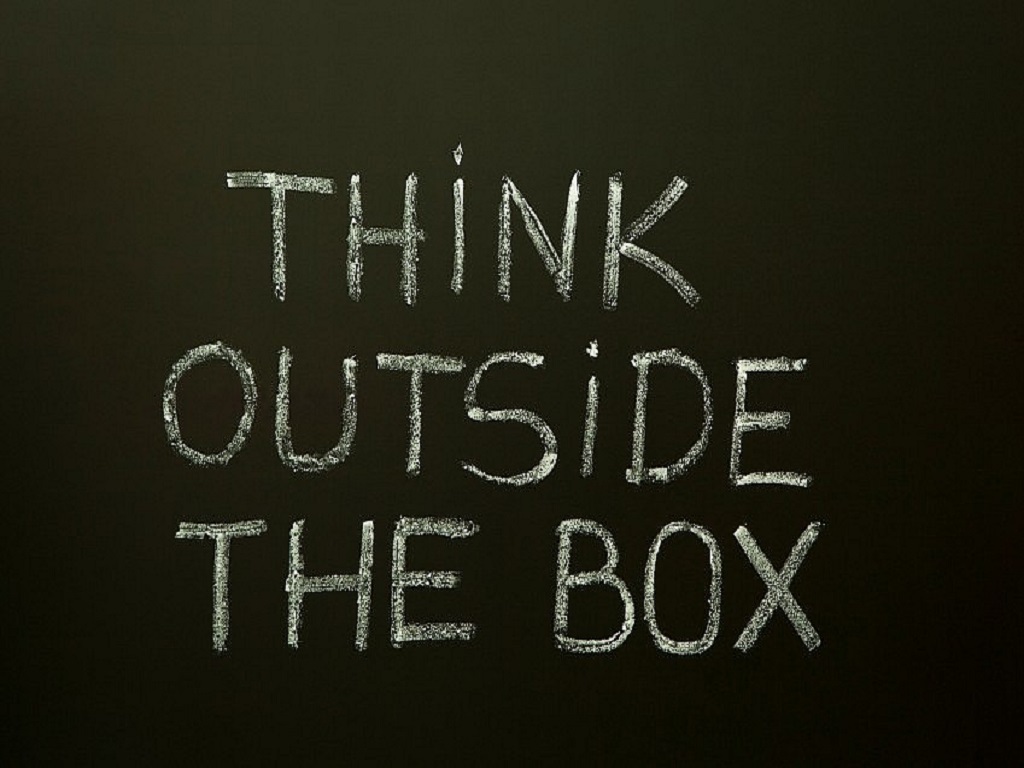 THiNK
OUTSiDE
THE BOX